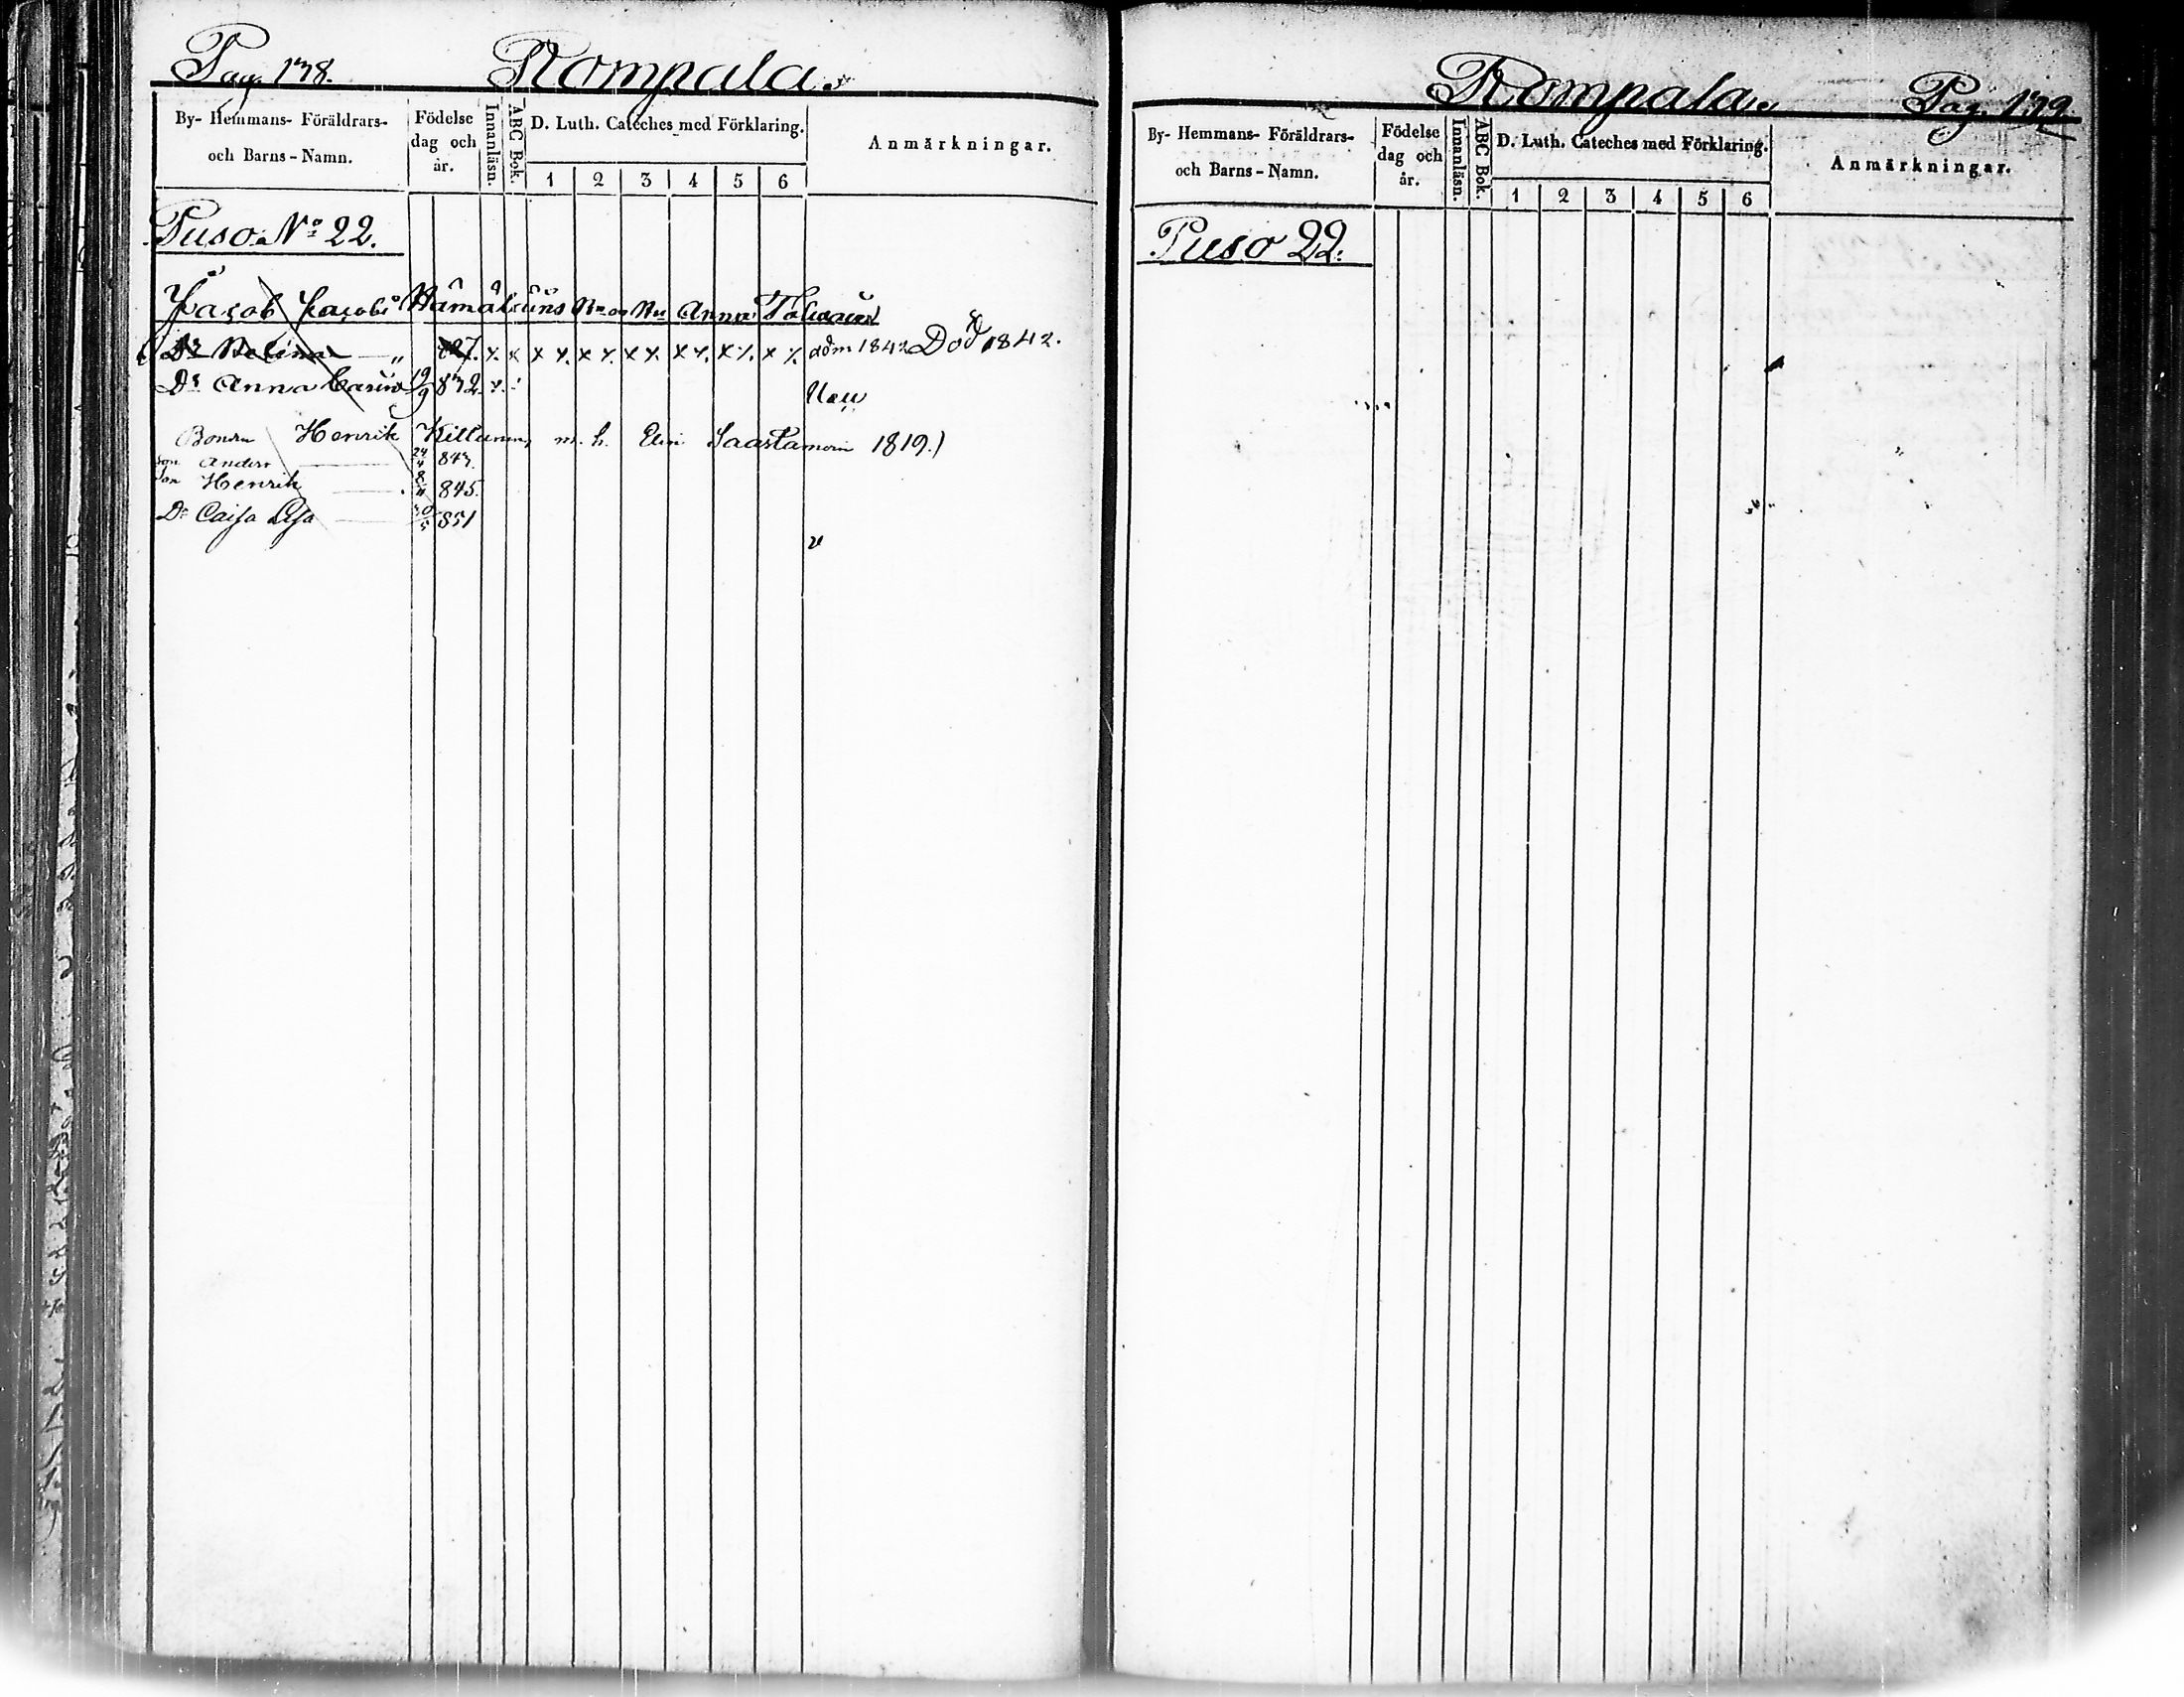 Pag. 138.
Rompala.
By- Hemmans- Föräldrars-
och Barns - Namn.
Födelse
dag och
år.
Innanläsn.
ABC Bok.
D. Luth. Cateches med Förklaring.
1 2 3 4 5 6
Anmärkningar.
Puso. No 22.
Jacob Jacobs
Dr Helina 827. adm 1842 Död 1842.
Dr Anna Carin 19/9 832
Bonden Henrik Kitlunen m. h. Elin Saastamoin 1819.)
Son Anders 24/4 843.
Son Henrik 845.
Dr Caisa Lisa 851
Rompala.
Pag. 139.
By- Hemmans- Föräldrars-
och Barns - Namn.
Födelse
dag och
år.
Innanläsn.
ABC Bok.
D. Luth. Cateches med Förklaring.
1 2 3 4 5 6
Anmärkningar.
Puso 22.